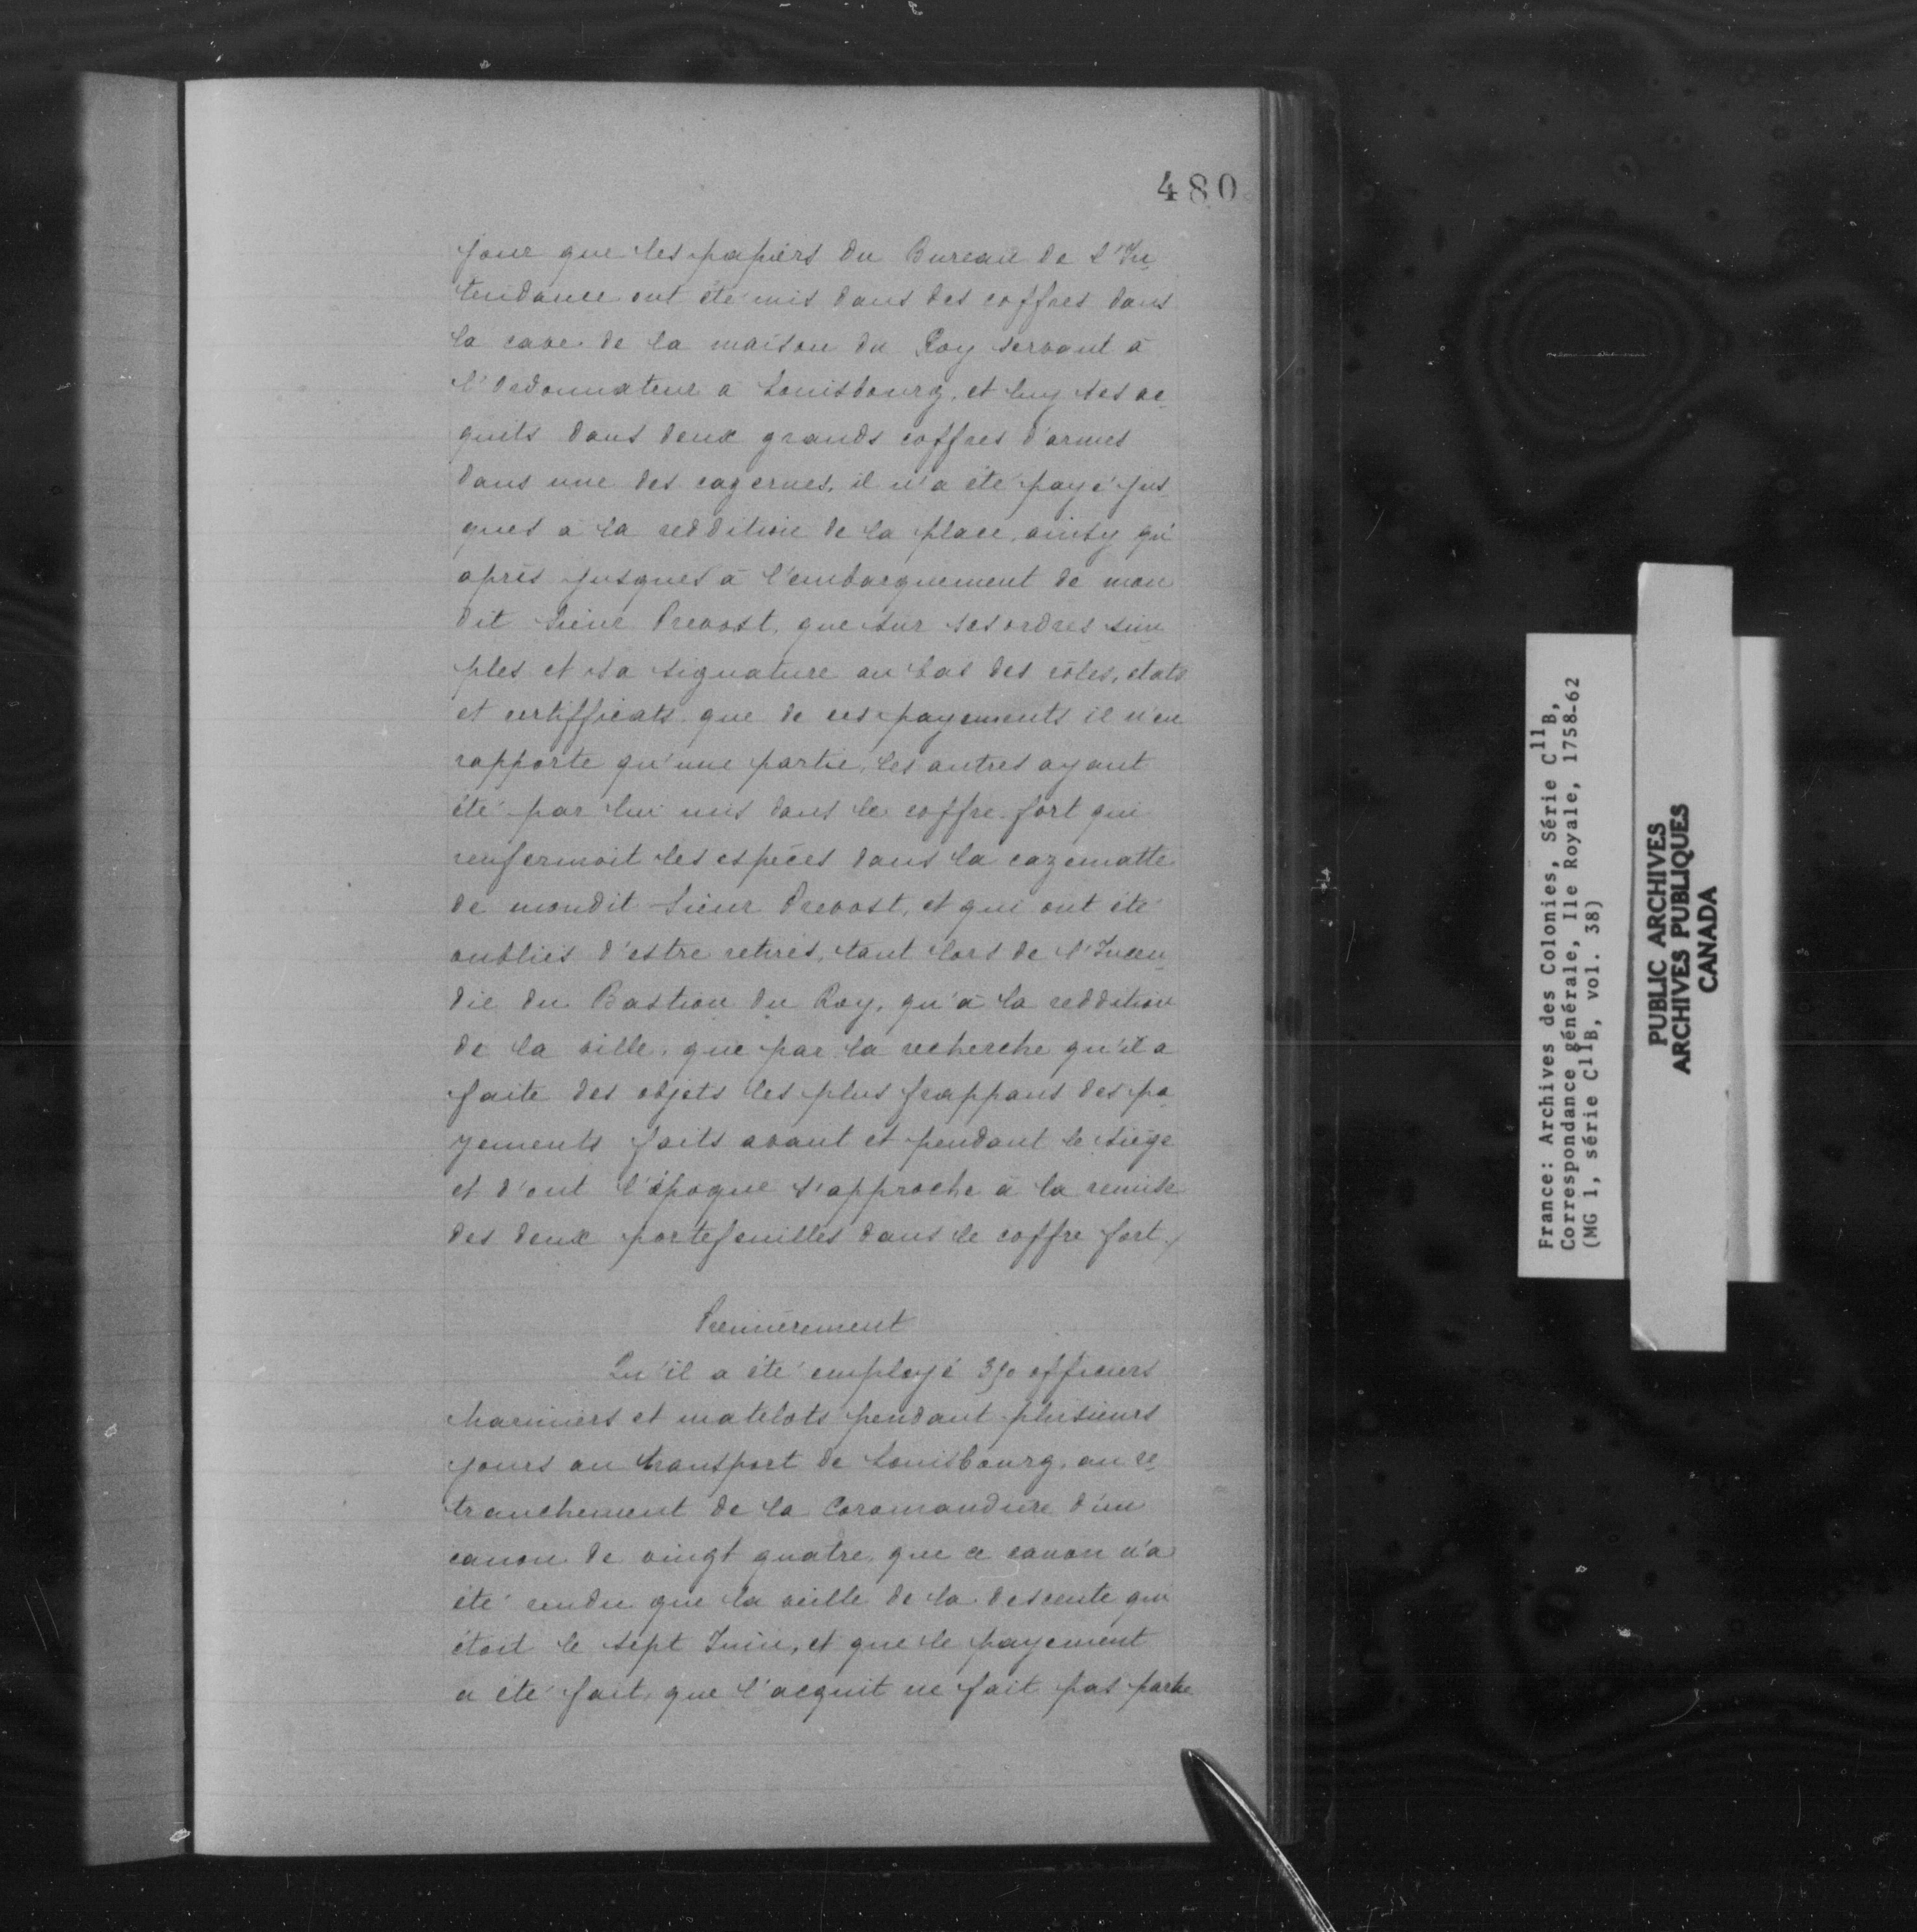 480
jour que les papiers du Bureau de l'In-
tendance ont été mis dans des coffres dans
la cave de la maison du Roy servant à
l'ordonnateur a Louisbourg, et luy ses ac-
quits dans deux grands coffres d'armes
dans une des cazernes, il n'a été payé jus-
ques à la reddition de la place, ainsy qu'
après jusques à l'embarquement de mon
dit Sieur Prevost, que sur ses ordres sim-
ples et sa signature au bas des rôles, etats
et certifficats que de ces payements il n'en
rapporte qu'une partie, les autres ayant
été par lui mis dans le coffre-fort qui
renfermoit les espèces dans la cazematte
de mondit Sieur Prevost, et qui ont été
oubliés d'estre retirés, tant lors de l'Incen-
die du Bastion du Roy, qu'à la reddition
de la ville, que par la recherche qu'il a
faite des objets les plus frappans des pa-
yements faits avant et pendant le siège
et d'ont l'époque s'approche à la remise
des deux portefeuilles dans le coffre fort./
Premièrement
Qu'il a été employé 350 officiers
Mariniers et matelots pendant plusieurs
jours au transport de Louisbourg, au re-
tranchement de la Coromandiere d'un
canon de vingt quatre, que ce canon n'a
été rendu que la veille de la descente qui
étoit le sept Juin, et que le payement
a été fait, que l'acquit ne fait pas partie
France: Archives des Colonies, Série C11B,
Correspondance générale, Ile Royale, 1758-62
(MG 1, série C11B, vol. 38)
PUBLIC ARCHIVES
ARCHIVES PUBLIQUES
CANADA